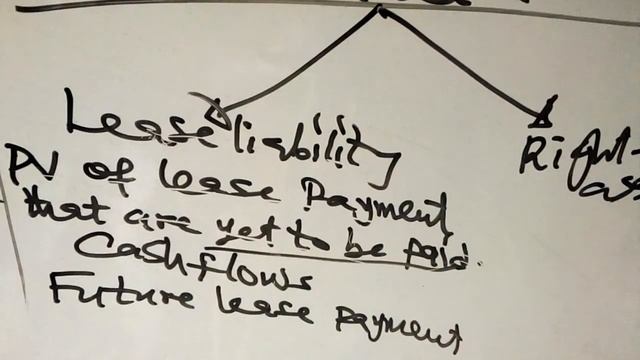 Lease liability
PV of lease Payment
that are yet to be paid.
Cashflows
Future lease payment
Right-